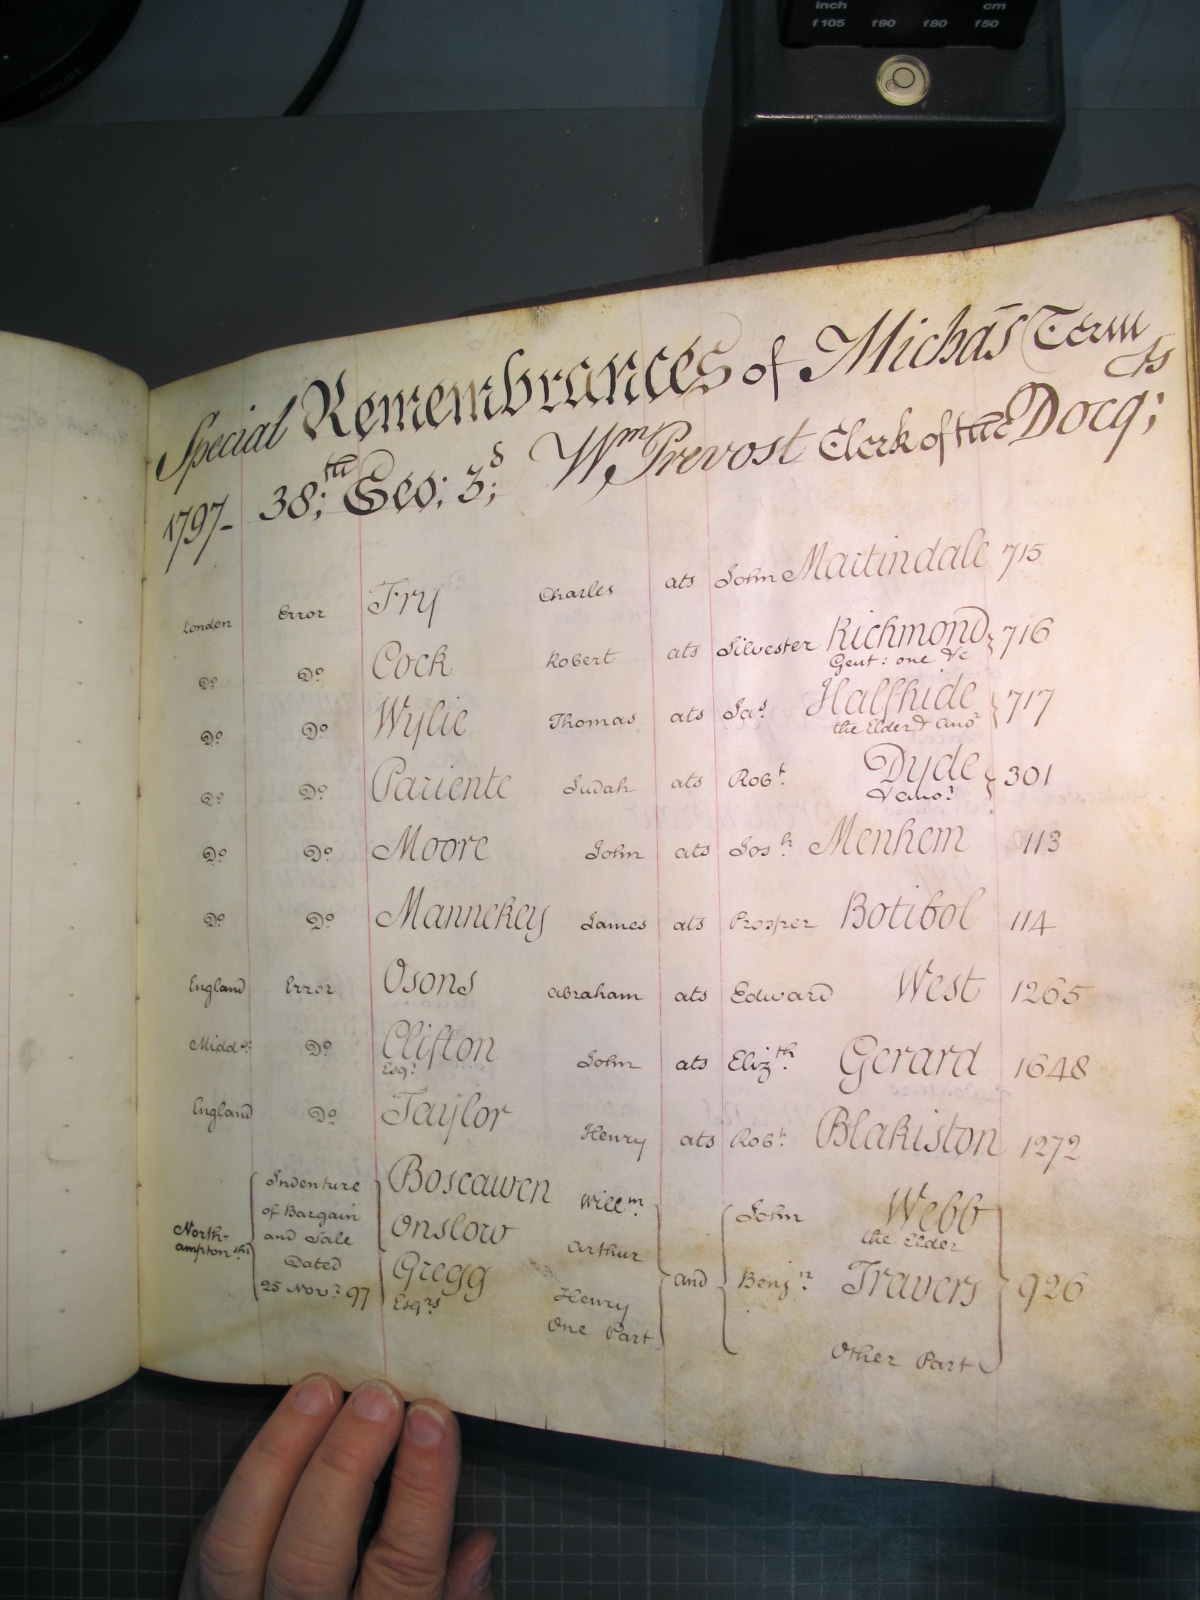 inch cm
f105 f90 f80 f50
PHILIPS
Special Remembrances of Michās Term
1797- 38;th Geo; 3;d Wm Prevost Clerk of the Docq;ts
London Error Fry Charles ats John Martindale 715
Do Do Cock Robert ats Silvester Richmond 716
Gent: one &c
Do Do Wylie Thomas ats Jas Halfhide 717
the Elder & anor
Do Do Pariente Judah ats Robt Dyde 301
& anor
Do Do Moore John ats Josh Menhem 113
Do Do Mannekey James ats Prosper Botibol 114
England Error Osons Abraham ats Edward West 1265
Middx Do Clifton John ats Elizth Gerard 1648
Esqr
England Do Taylor Henry ats Robt Blakiston 1272
North-
ampton
Indenture
of Bargain
and Sale
Dated
25 Novr 97
Boscawen Willm
Onslow Arthur
Gregg Henry
Esqrs One Part
and
John Webb
the Elder
Benjn Travers 926
Other Part